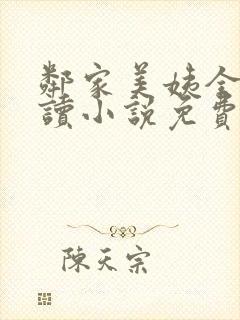 鄰家美姨全
讀小說免費
陳天宗